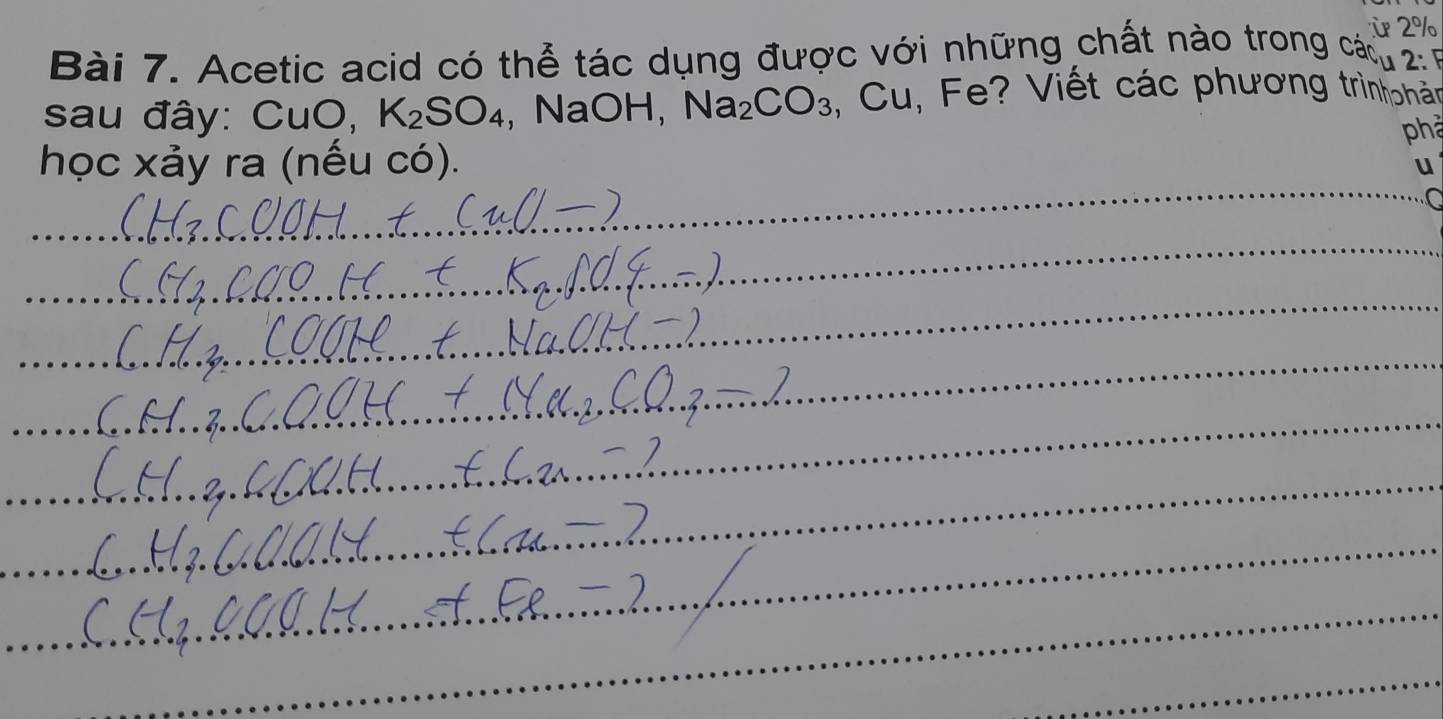 ừ 2%
Bài 7. Acetic acid có thể tác dụng được với những chất nào trong các
u 2: F
sau đây: CuO, K₂SO₄, NaOH, Na₂CO₃, Cu, Fe? Viết các phương trình
phản
phả
học xảy ra (nếu có).
u
CH₃COOH + CuO →
CH₃COOH + K₂SO₄ →
CH₃COOH + NaOH →
CH₃COOH + Na₂CO₃ →
CH₃COOH + Cu →
CH₃COOH + Cu →
CH₃COOH + Fe →